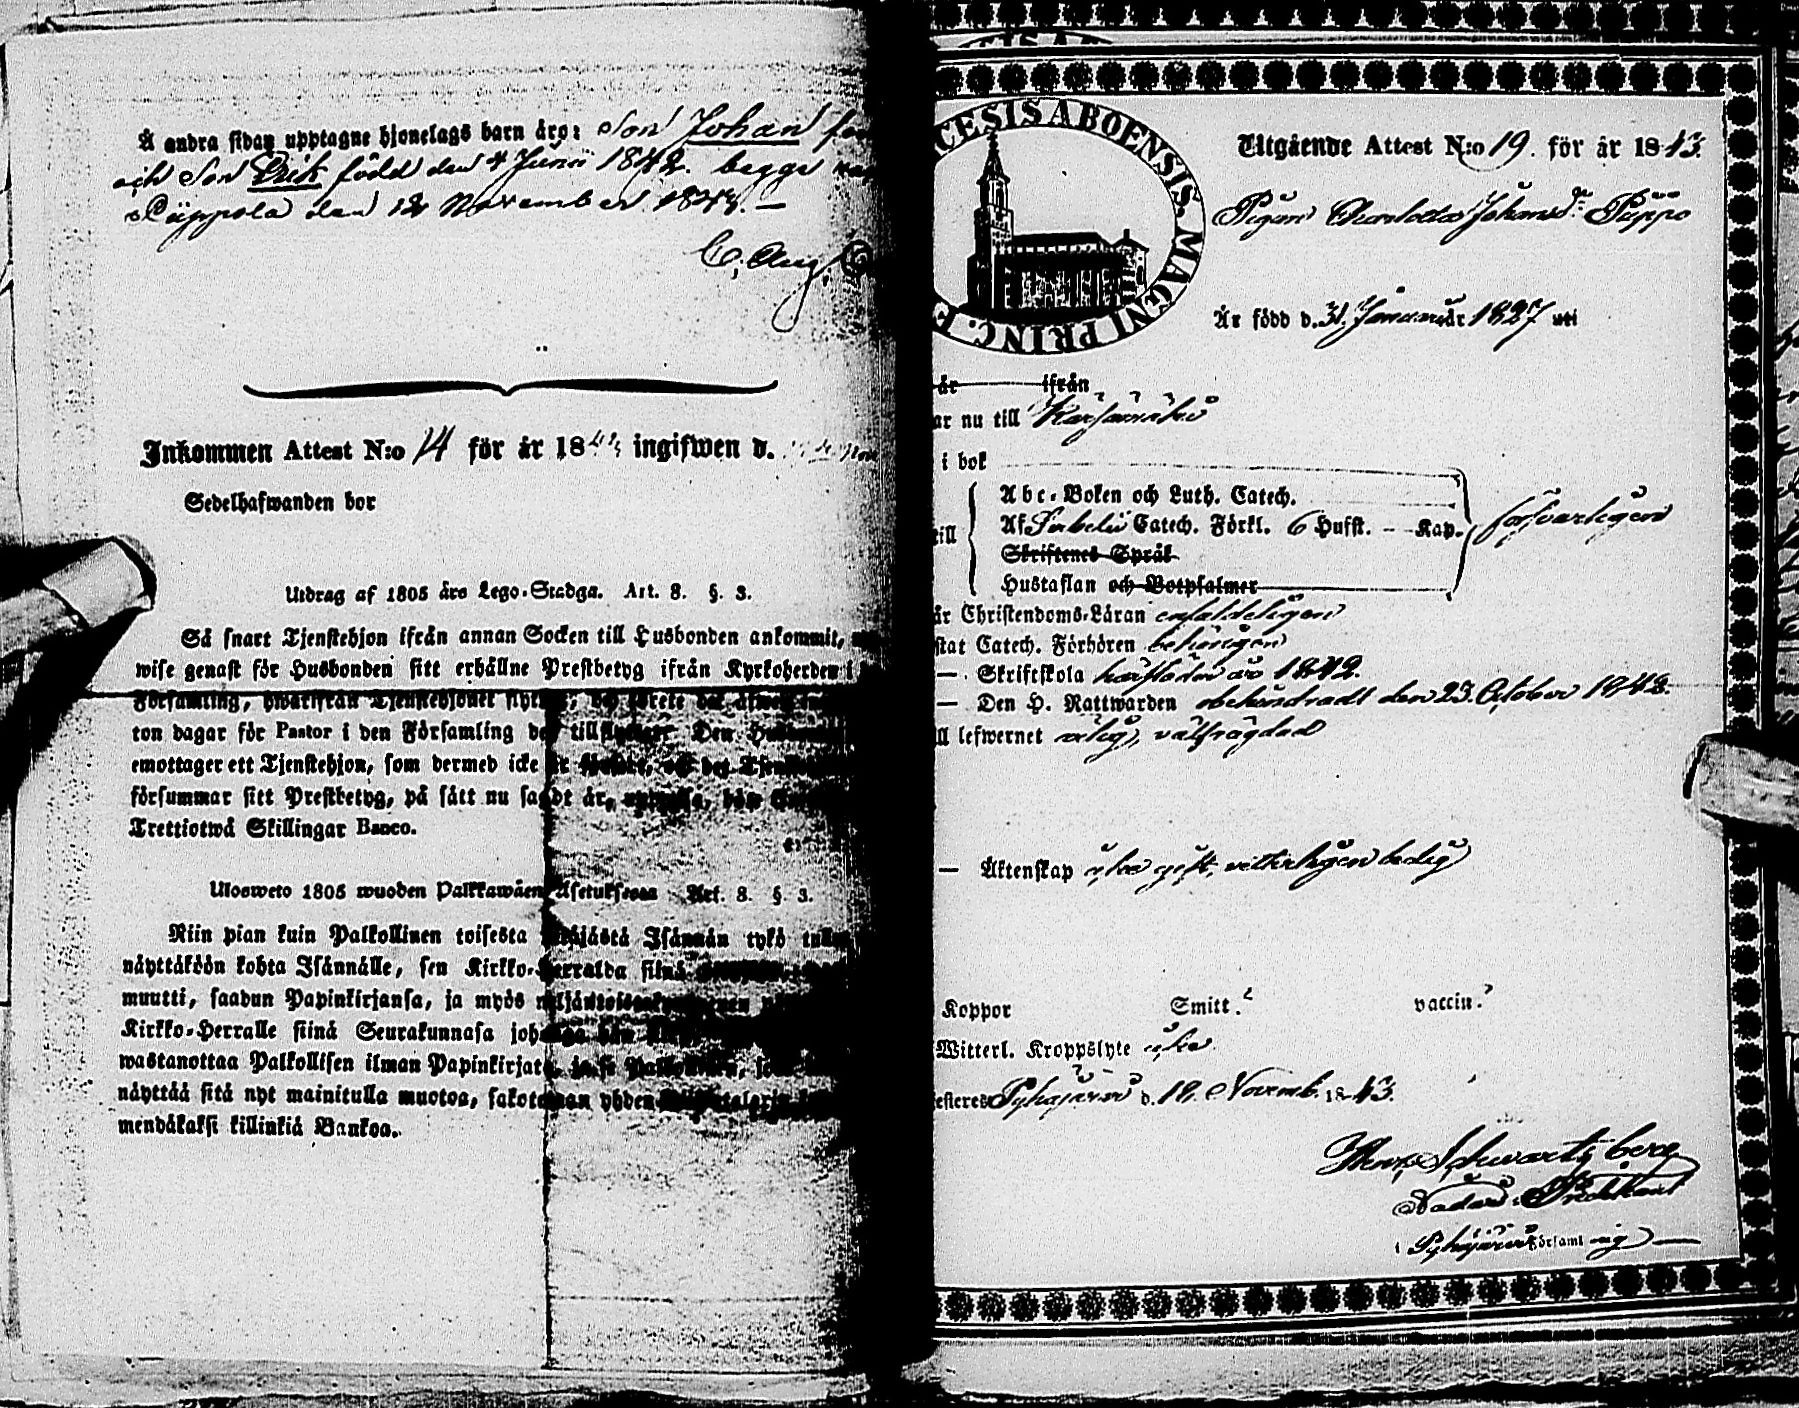 Å andra sidan upptagne hjonelags barn äro: Son Johan
och Son Erik född den 4 Junii 1842. begge
Piippola den 12 November 1843. —
C. Aug.
Inkommen Attest N:o 14 för år 1843 ingifwen d.
Sedelhafwanden bor
Utdrag af 1805 års Lego-Stadga. Art. 8. §. 3.
Så snart Tjenstehjon ifrån annan Socken till Husbonden ankommit,
wise genast för Husbonden sitt erhållne Prestbetyg ifrån Kyrkoherden i
Församling, hwarifrån Tjenstehjonet flyttat, och förete det
ton dagar för Pastor i den Församling det tillflyttar. Den Husbonde
emottager ett Tjenstehjon, som dermed icke är försedt, och det
försummar sitt Prestbetyg, på sätt nu sagdt är, uppwisa, böte
Trettiotwå Skillingar Banco.
Ulosweto 1805 wuoden Palkkawäen Asetuksesta Art. 8. §. 3.
Niin pian kuin Palkollinen toisesta Pitäjästä Isännän tykö
näyttäköön kohta Isännälle, sen Kirkko-Herralda siinä
muutti, saadun Papinkirjansa, ja myös
Kirkko-Herralle siinä Seurakunnasa johonga hän
wastanottaa Palkollisen ilman Papinkirjata, ja se Palkollinen,
näyttää sitä nyt mainitulla muotoa, sakotetaan yhden
mendäkaksi killinkiä Bankoa.
CESIS ABOENSIS. MAGNI PRINC. F
Utgående Attest N:o 19. för år 1843.
Pigan Charlotta Johansdr Piippo
Är född d. 31. Januarii år 1827 uti
år ifrån
ar nu till Kärsämäki
i bok
Abc-Boken och Luth. Catech.
till Af Sebelii Catech. Förkl. 6 Hufst. — Kap. försvarligen
Skriftenes Språk
Hustaflan och Botpsalmer
är Christendoms-Läran enfaldeligen
stat Catech. Förhören behörigen
— Skriftskola härstädes år 1842.
— Den H. Nattwarden obehindradt den 23. October 1842.
ll lefwernet ärlig, välfrägdad
— Äktenskap icke gift, veterligen ledig
Koppor Smitt.? vaccin.?
Witterl. Kroppslyte icke
esteres Pyhäjärvi d. 12. Novemb. 1843.
Schwartzberg
Sadans Predikant
i Pyhäjärvi Församling —